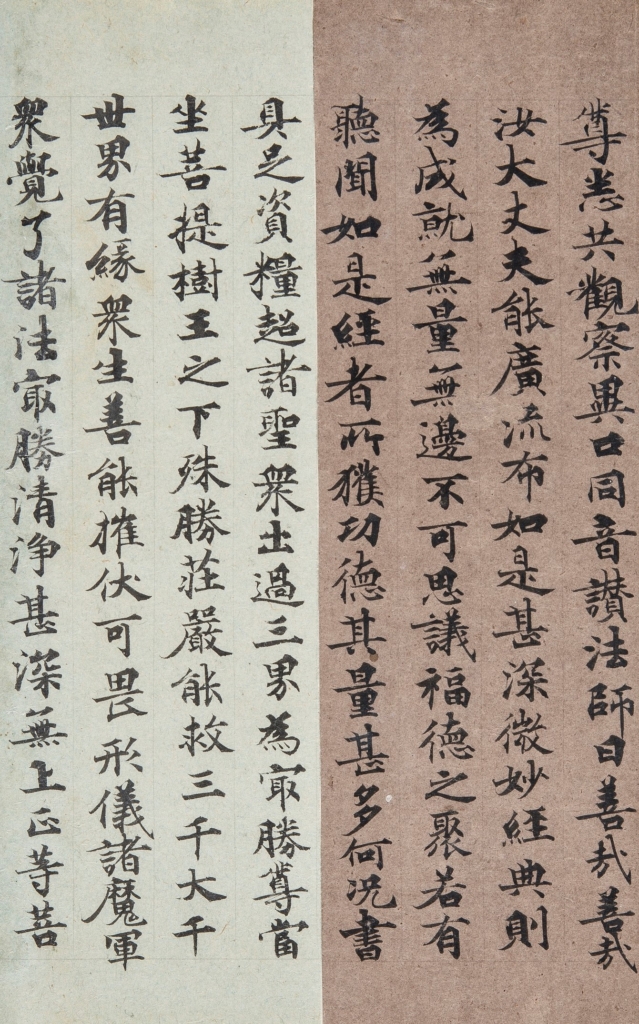 尊悉共觀察異口同音讃法師曰善哉善哉
汝大丈夫能廣流布如是甚深微妙經典則
為成就無量無邊不可思議福德之聚若有
聽聞如是經者所獲功德其量甚多何況書
具足資糧超諸聖衆出過三界為㝡勝尊當
坐菩提樹王之下殊勝莊嚴能救三千大千
世界有緣衆生善能摧伏可畏形儀諸魔軍
衆覺了諸法㝡勝清淨甚深無上正等菩